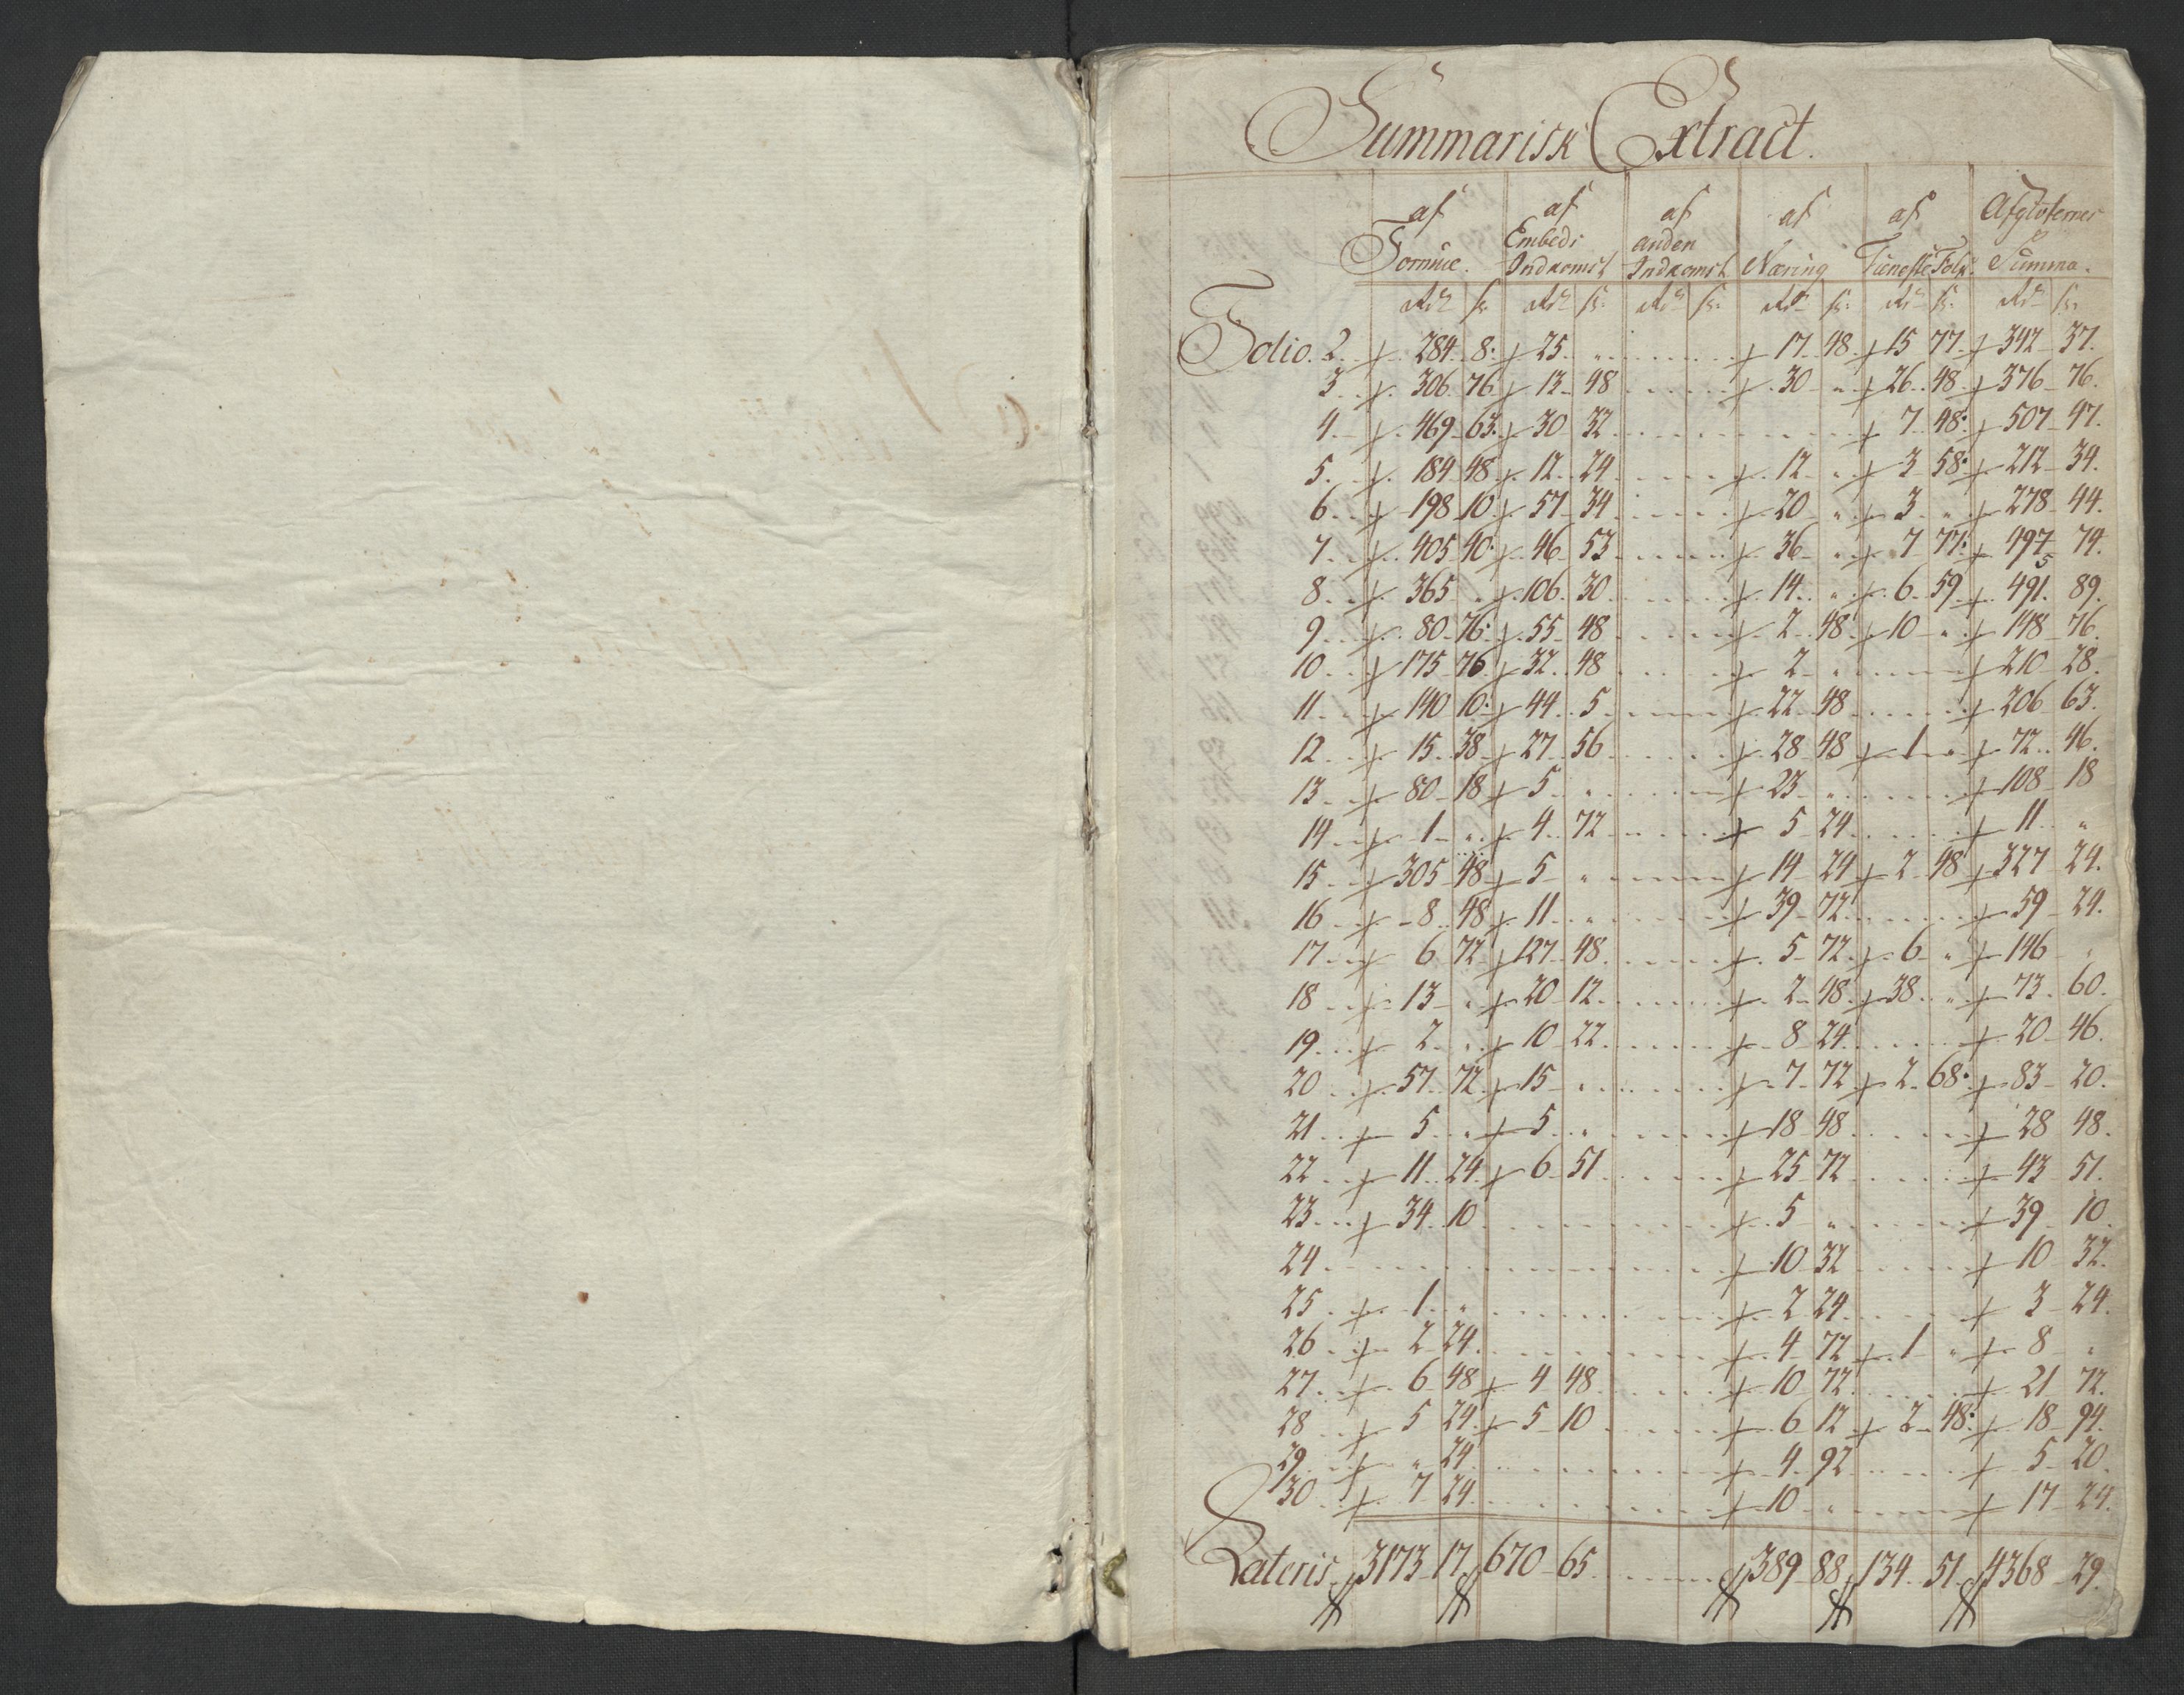 Summarisk Extract.
af af af af af Afgivternes
Formue. Embeds Indkomst anden Indkomst Næring Tieneste Folk. Summa.
Rdr s. Rdr s. Rdr s. Rdr s. Rdr s. Rdr s.
Folio. 2. 284 8. 25 " 17 48 15 77 342 37.
3 306 76 13 48 30 " 26 48 376 76.
4 469 63. 30 32 7 48. 507 47.
5. 184 48 12 24 12 " 3 58. 212 34.
6 198 10 57 34 20 " 3 " 278 44.
7 405 40. 46 53 36 " 7 77. 497 74.
5
8 365 106 30 14 " 6 59 491. 89.
9 80 76. 55 48 2 48 10 " 148 76.
10 175 76 32 48 2 " 210 28.
11 140 10. 44 5 22 48 206 63.
12 15 38 27 56 28 48 1 " 72 46.
13 80 18 5 " 23 " 108 18
14 1 " 4 72 5 24 11 "
15 305 48 5 " 14 24 2 48 327 24.
16 8 48 11 " 39 72 59 24.
17 6 72 127 48 5 72 6 " 146 "
18 13 " 20 12 2 48 38 " 73 60.
19 2 " 10 22 8 24 20 46.
20 57 72 15 " 7 72 2 68. 83 20.
21 5 " 5 " 18 48 28 48.
22 11 24 6 51 25 72 43 51.
23 34 10 5 " 39 10.
24 10 32 10 32.
25 1 " 2 24 3 24.
26 2 24 4 72 1 " 8 "
27 6 48 4 48 10 72 21 72.
28 5 24 5 10 6 12 2 48. 18 94.
29 " 24 4 92 5 20.
30 7 24 10 " 17 24.
Lateris 3173 17 670 65 389 88 134 51 4368 29.